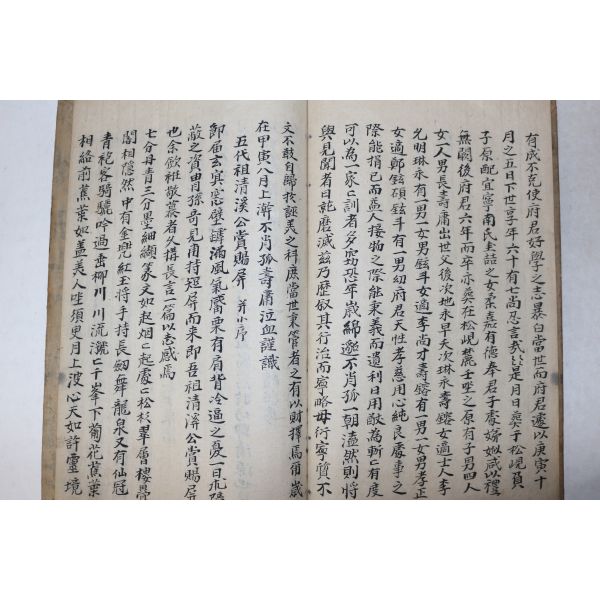 有成不克使府君好學之志暴白當世而府君遽以庚寅十
月之五日下世享年六十有七尚忍言哉是月日葬于松峴負
子原配宜寧南氏圭話之女柔嘉有德奉君子處娣姒咸以禮
無闕後府君六年而卒亦葬在松峴麓壬坐之原有子男四人
女一人男長壽庸出世父後次地永早夭次琳永壽鎔女適士人李
光明琳永有一男一女男鉉斗女適李尚才壽鎔有二男一女男孝正
女適鄭鉉碩鉉斗有一男幼府君天性孝慈用心純良處事之
際能損己而益人接物之際能秉義而遺利日用敬為斬〻有度
可以為一家之訓者多矣恐年歲綿邈不肖孤一朝溘然則將
與見聞者日就磨滅玆乃歷敘其行治而寧略毋衍寧質不
文不敢自歸於誣美之科庶當世秉管者之有以財擇焉爾歲
在甲寅八月上澣不肖孤壽庸泣血謹識
五代祖清溪公賞賜屏 并小序
卸在玄冥窓壁罅滿風氣觱栗有肩背冷逼之憂一日
敞之資胄孫奇見甫持短屏而來即吾祖清溪公賞賜屏
也余欽祗敬慕者久構長言一篇以志感焉
七分丹青三分墨細纈篆文如起烟〻起處〻松杉翠層樓疊
閣相隱然中有金兜紅玉將手持長劒舞龍泉又有仙冠
青袍客騎驢吟過垂柳川川流濺〻千峯下葡花蕉葉
相絡前蕉葉如盖美人坐須臾月上波心天如許靈境